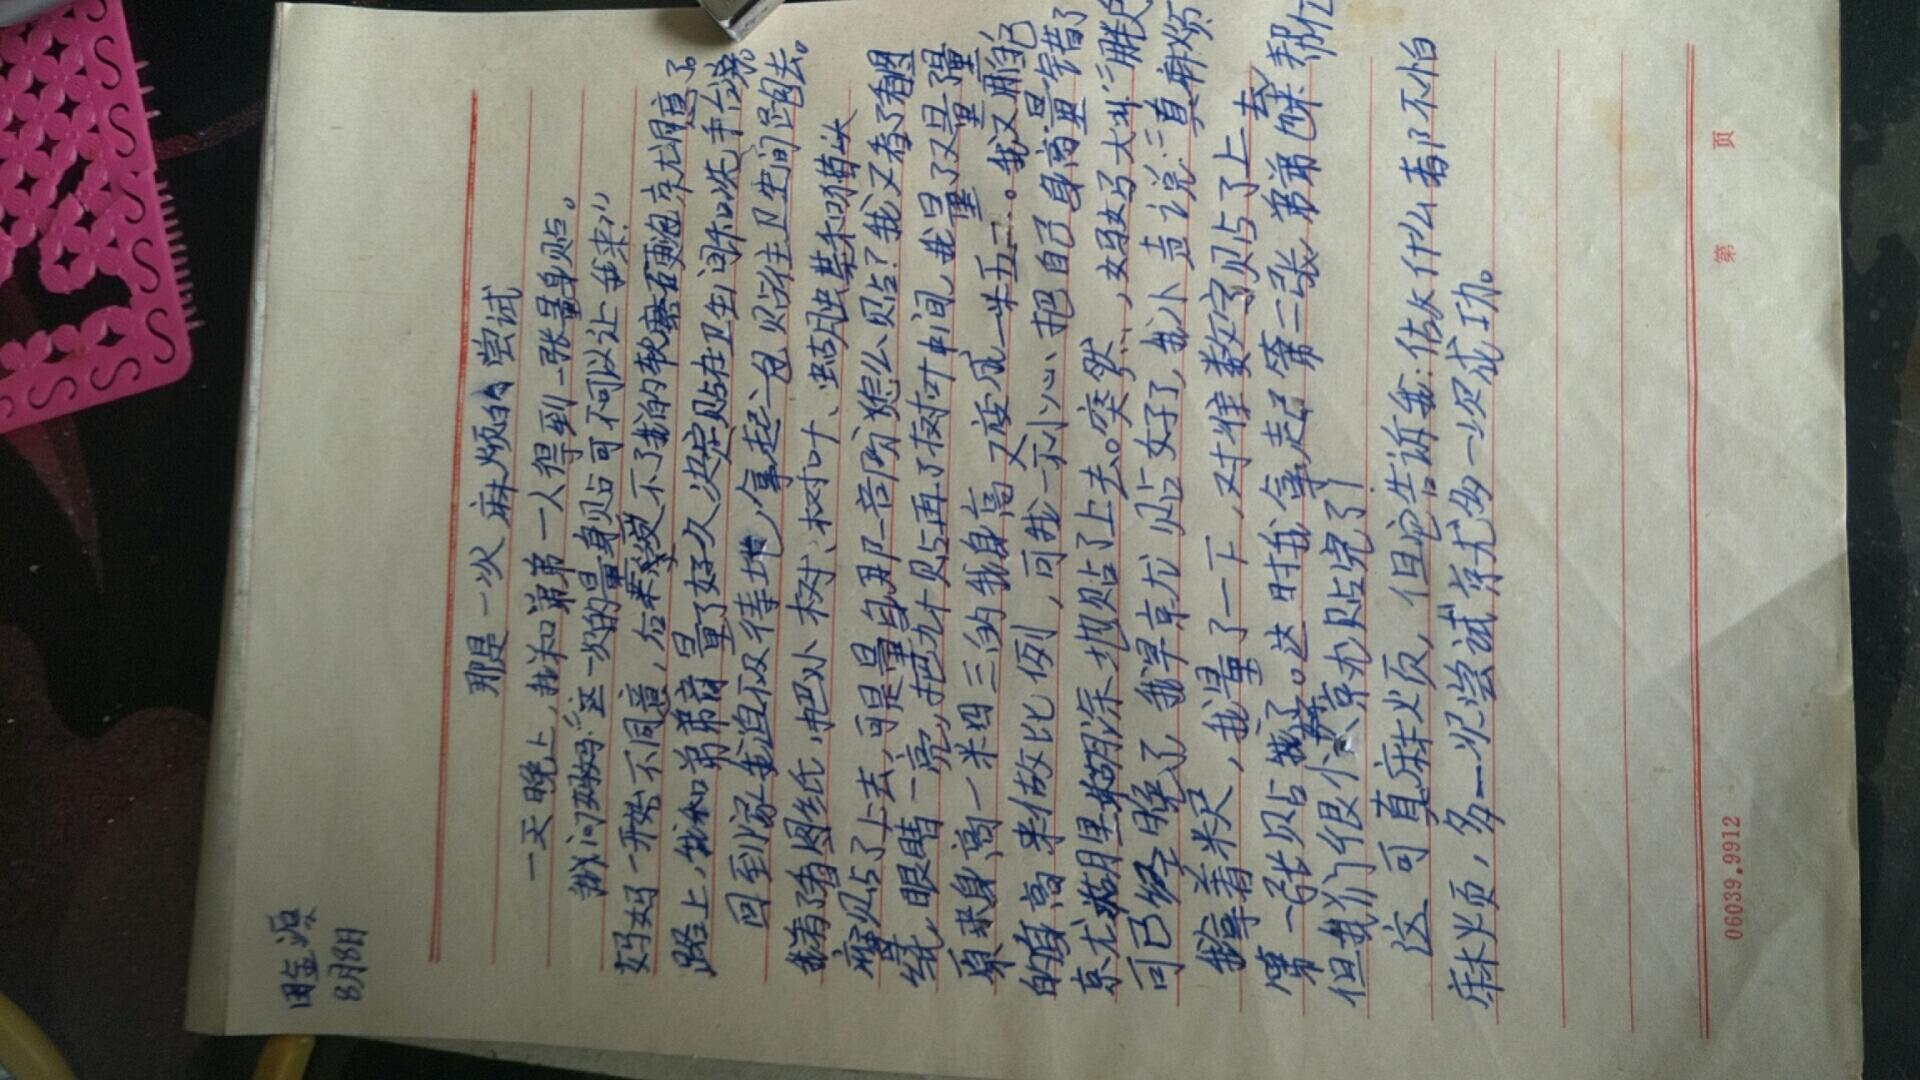 田金源
8月8日
那是一次麻烦的尝试
一天晚上,我和弟弟一人得到一张量身贴。
我问妈妈:“这一次的量身贴可不可以让我来?”
妈妈一开始不同意,后来受不了我的软磨硬泡就同意了
路上,我和弟弟商量了好久决定贴在卫生间和洗手台旁。
回到家我迫不及待地,拿起一包贴往卫生间跑去。
我看了看图纸,把小树、树叶、蝴蝶和猫头
鹰贴了上去,可是量身那一部分怎么贴?我又看了看图
纸,眼睛一亮,把九十贴再了树叶中间,我量了又量,
原来身高一米四三的我身高又变成一米五二。我又用自己
的身高来做比例,可我一不小心把自己身高量错了
就糊里糊涂地贴了上去。突然,妈妈大叫:
可已经晚了,我早就贴好了,我小声说:“真麻烦
我拿着米尺,我量了一下,对准数字贴了上去
第一张贴好了。这时我拿起第二张,弟弟也来帮忙
但我们很快就贴完了!
这可真麻烦,但它告诉我:做什么都不怕
麻烦,多一次尝试就多一次成功。
第 页
06039.9912